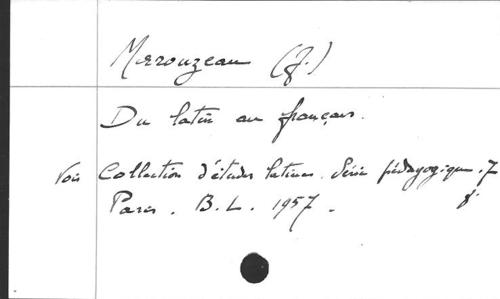 Marouzeau (J.)
Du latin au français.
Voir Collection d'études latines. Série pédagogique. 7
Paris. B.L. 1957.